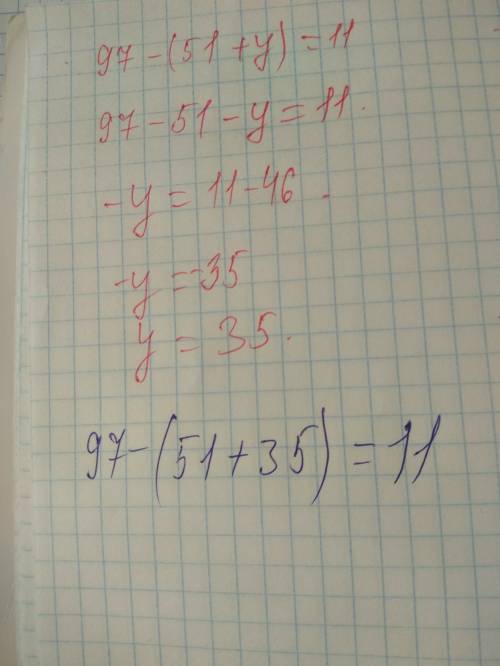 97-(51+y)=11
97-51-y=11.
-y=11-46.
-y=-35
y=35.
97-(51+35)=11